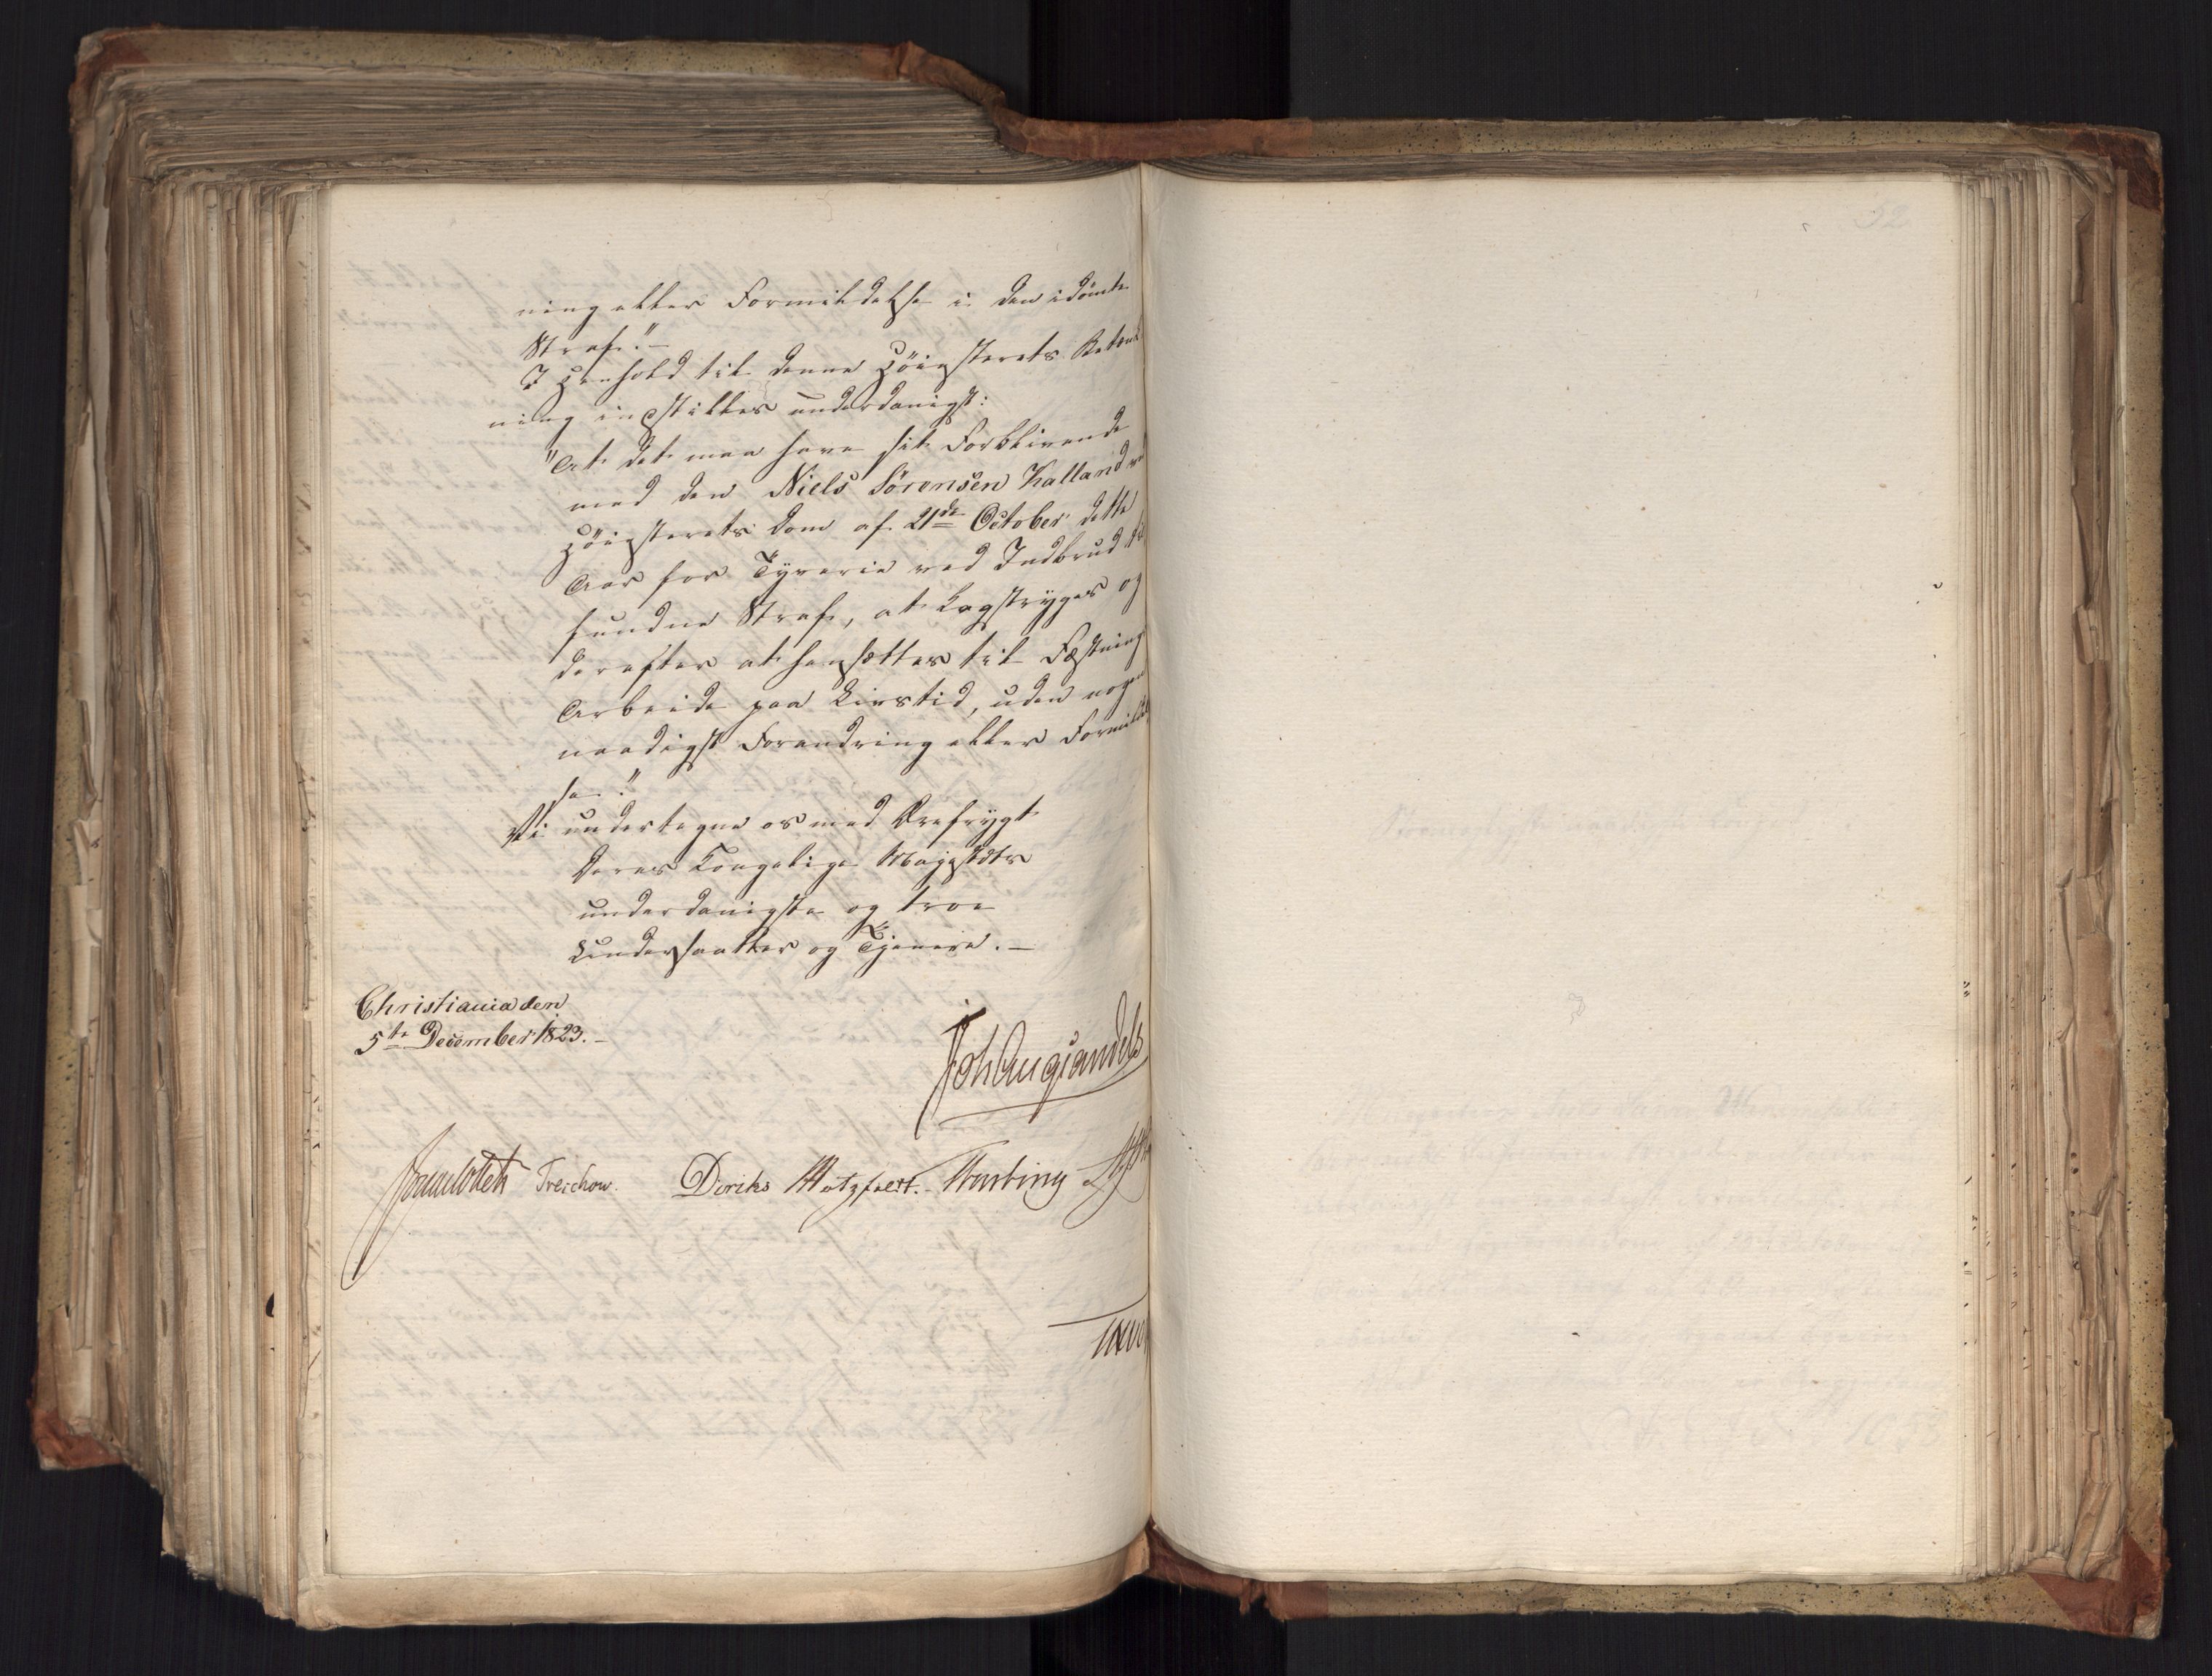 ning eller Formildelse i den idömte
Straf."-
I Henhold til denne Höiesterets Betænk
ning indstilles underdanigst:
"At det maa have sit Forblivende
med den Niels Sörensen Kalland ved
Höiesterets Dom af 21de October dette
Aar for Tyverie ved Indbrud til
fundne Straf, at kagstryges og
derefter at hensættes til Fæstnings
Arbeide paa Livstid, uden nogen
naadigst Forandring eller Formildel
se."
Vi undertegne os med Ærefrygt
Deres Kongelige Majestæts
underdanigste og troe
Undersaatter og Tjenere.-
Christiania den
5te December 1823.-
Joh Aug Sandels
Jonas Collett Treschow. Diriks Motzfeldt. Fasting
52